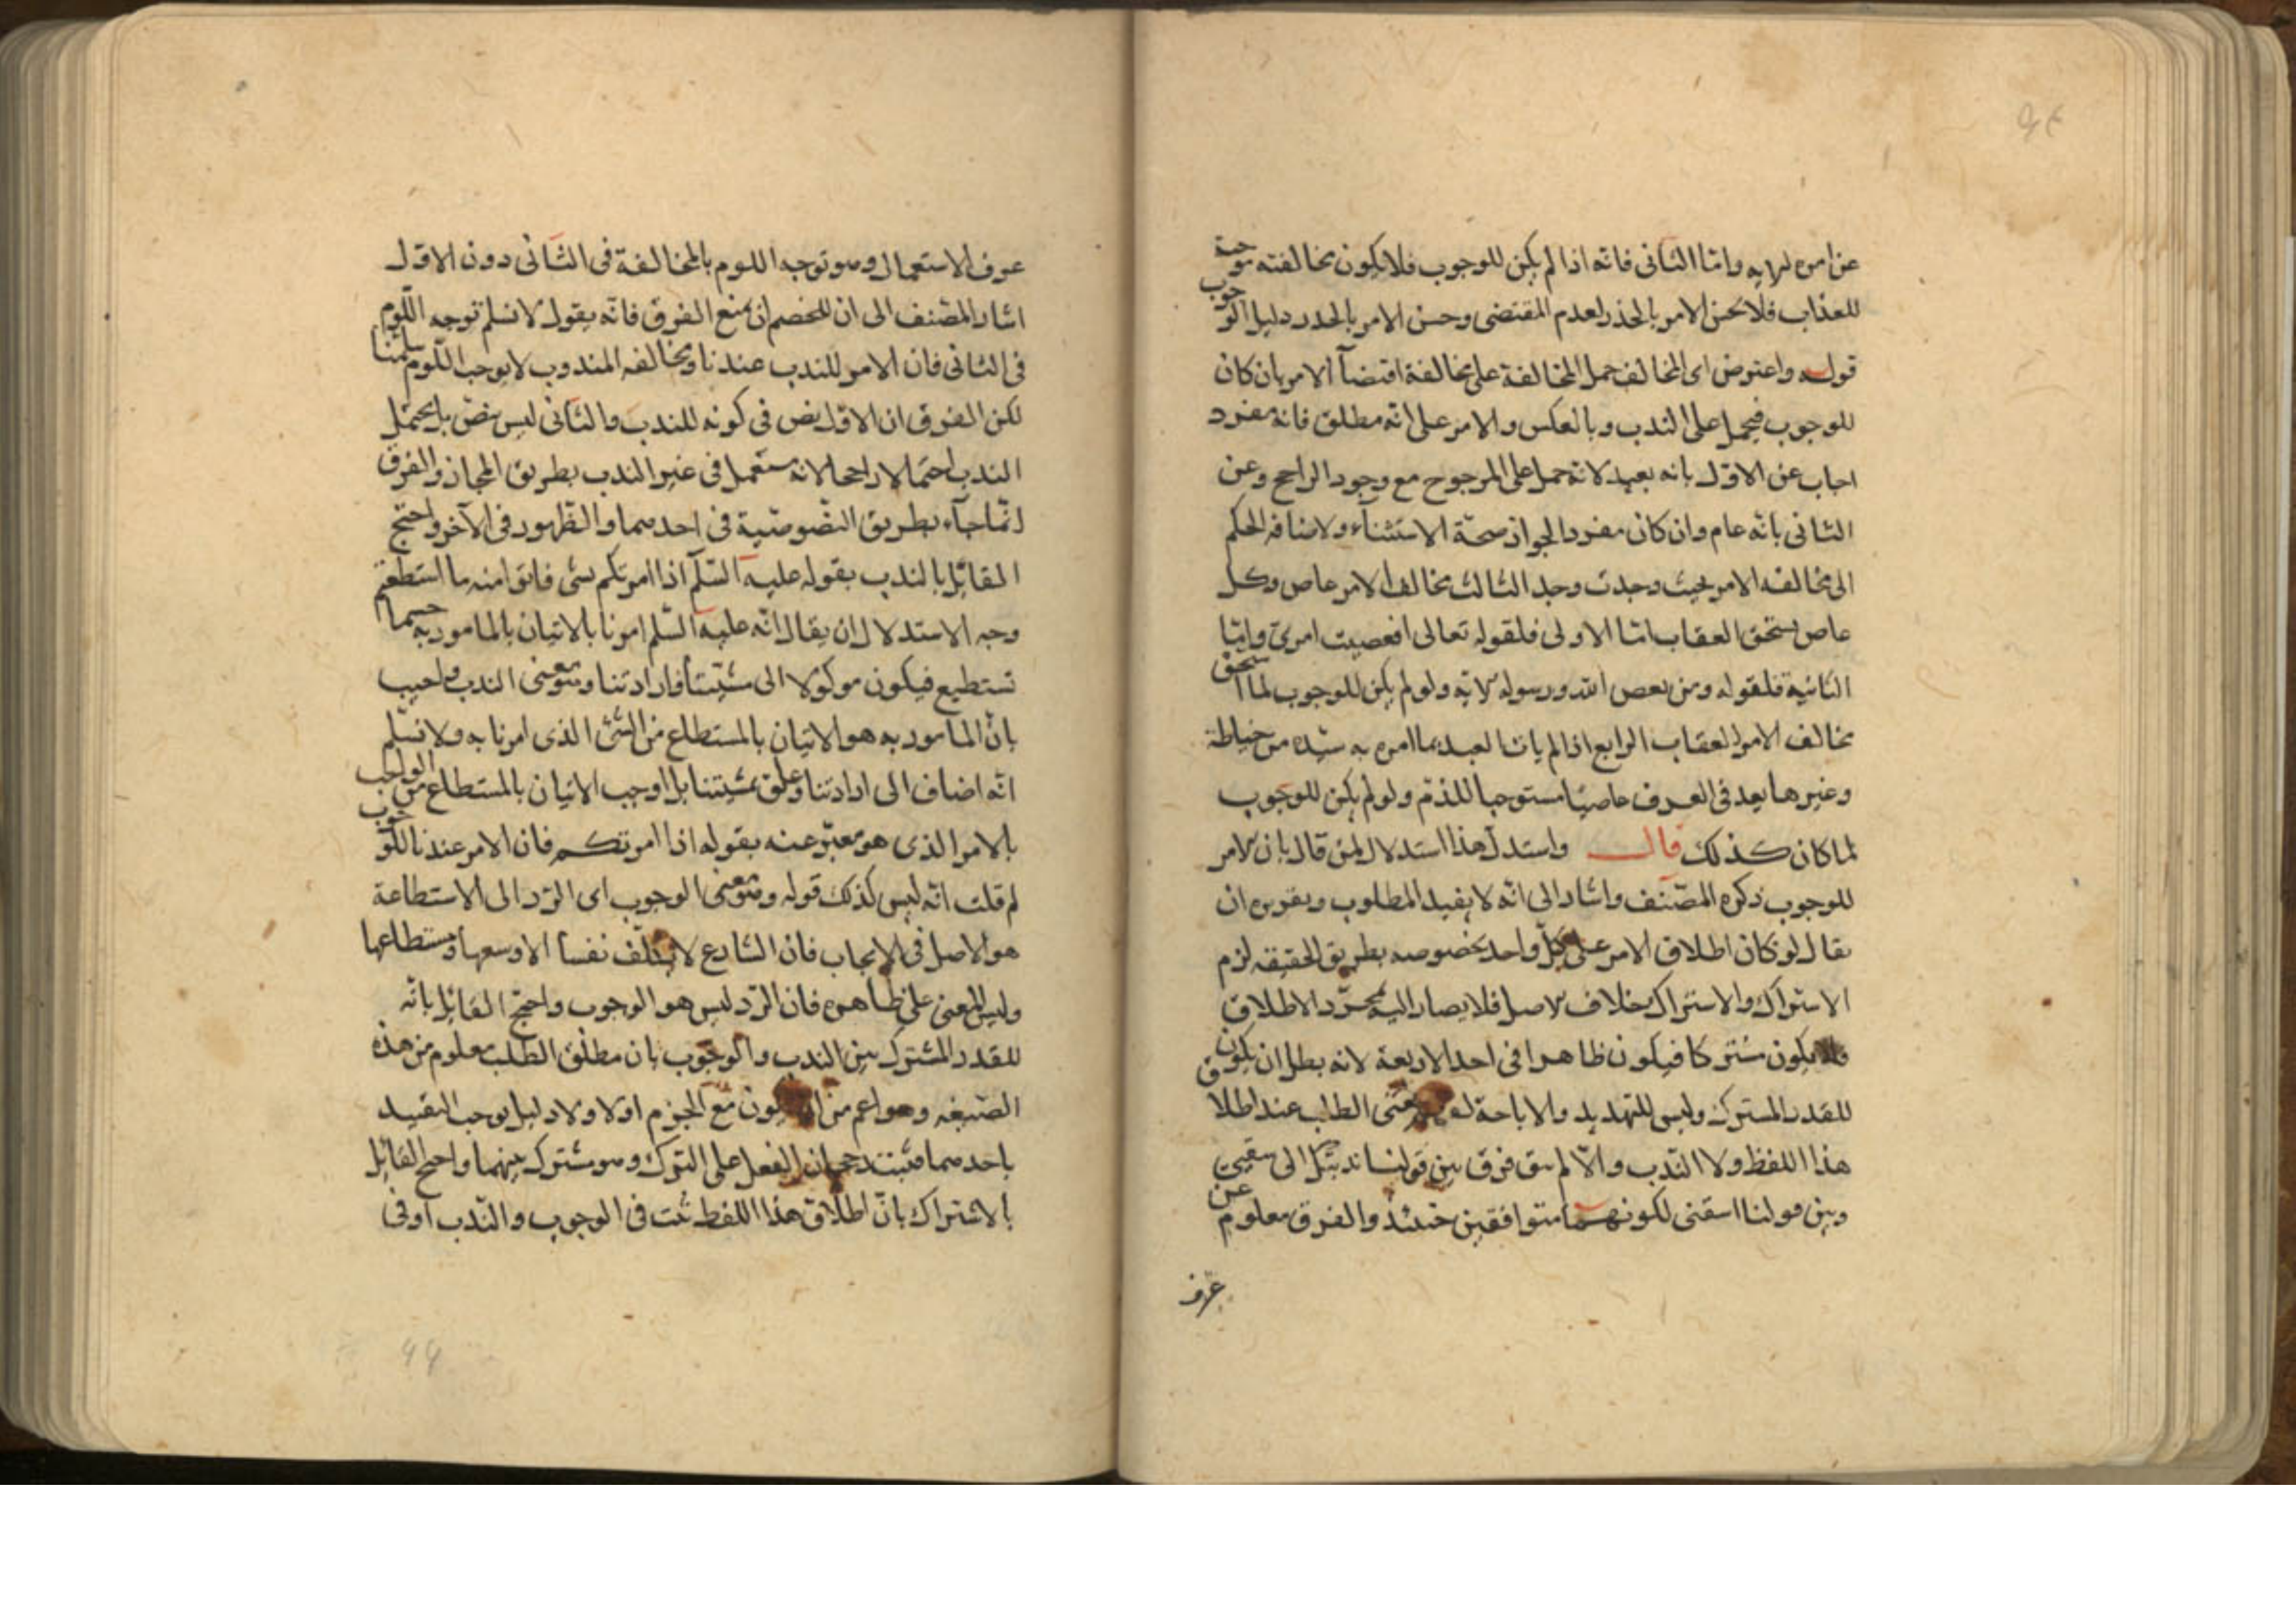 عن امره الايه واما الثانى فانه اذا لم يكن للوجوب فلا يكون مخالفته موجبة
للعذاب فلا يحسن الامر بالحذر لعدم المقتضى وحسن الامر بالحذر دليل الوجوب
قوله واعترض اى المخالف حمل المخالفة على مخالفة اقتضآ الامر بان كان
للوجوب فيحمل على الندب وبالعكس والامر على انه مطلق فانه مفرد
اجاب عن الاول بانه بعيد لانه حمل على المرجوح مع وجود الراجح وعن
الثانى بانه عام وان كان مفردا لجواز صحة الاستثنآء ولاضافه الحكم
الى مخالفه الامر بحيث وجدت وجد الثالث مخالف الامر عاص وكل
عاص يستحق العقاب اما الاولى فلقوله تعالى افعصيت امرى واما
الثانية فلقوله ومن يعص الله ورسوله الايه ولو لم يكن للوجوب لما استحق
مخالف الامر العقاب الرابع اذا لم يات العبد بما امره به سيده من خياطة
وغيرها يعد فى العرف عاصيا مستوجبا للذم ولو لم يكن للوجوب
لما كان كذلك قال واستدل هذا استدلال لمن قال بان الامر
للوجوب ذكره المصنف واشار الى انه لا يفيد المطلوب وتقريره ان
يقال لو كان اطلاق الامر على كل واحد بخصوصه بطريق الحقيقه لزم
الاشتراك والاشتراك خلاف الاصل فلا يصار اليه بمجرد الاطلاق
فلا يكون مشتركا فيكون ظاهرا فى احد الاربعة لانه بطل ان يكون
للقدر المشترك وليس للتهديد والاباحة معنى الطلب عند اطلاق
هذا اللفظ ولا الندب والا لم يبق فرق بين قولنا ندبتك الى سقيى
وبين قولنا اسقنى لكونهما متوافقين حينئذ والفرق معلوم عن
عرف
عرف الاستعمال وهو توجه اللوم بالمخالفة فى الثانى دون الاول
اشار المصنف الى ان للخصم ان يمنع الفرق فانه يقول لا نسلم توجه اللوم
فى الثانى فان الامر للندب عندنا ومخالفه المندوب لا يوجب اللوم سلمنا
لكن الفرق ان الاول نص فى كونه للندب والثانى ليس بنص بل يحتمل
الندب احتمالا راجحا لانه يستعمل فى غير الندب بطريق المجاز والفرق
انما جآء بطريق النصوصية فى احدهما والظهور فى الآخر واحتج
القائل بالندب بقوله عليه السلم اذا امرتكم بشى فاتوا منه ما استطعتم
وجه الاستدلال ان يقال انه عليه السلم امرنا بالاتيان بالمامور به حسبما
نستطيع فيكون موكولا الى مشيتنا وارادتنا وهو معنى الندب واجيب
بان المامور به هو الاتيان بالمستطاع من الشئ الذى امرنا به ولا نسلم
انه اضاف الى ارادتنا وعلق بمشيتنا بل اوجب الاتيان بالمستطاع من الواجب
بالامر الذى هو معبر عنه بقوله اذا امرتكم فان الامر عندنا للوجوب
لم قلت انه ليس كذلك قوله وهو معنى الوجوب اى الرد الى الاستطاعة
هو الاصل فى الايجاب فان الشارع لا يكلف نفسا الا وسعها ومستطاعها
وليس المعنى على ظاهره فان الرد ليس هو الوجوب واحتج القائل بانه
للقدر المشترك بين الندب والوجوب بان مطلق الطلب معلوم من هذه
الصيغه وهو اعم من ان يكون مع الجزم اولا ولا دليل يوجب التقييد
باحدهما فيثبت رجحان الفعل على الترك وهو مشترك بينهما واحتج القائل
بالاشتراك بان اطلاق هذا اللفظ ثبت فى الوجوب والندب او فى